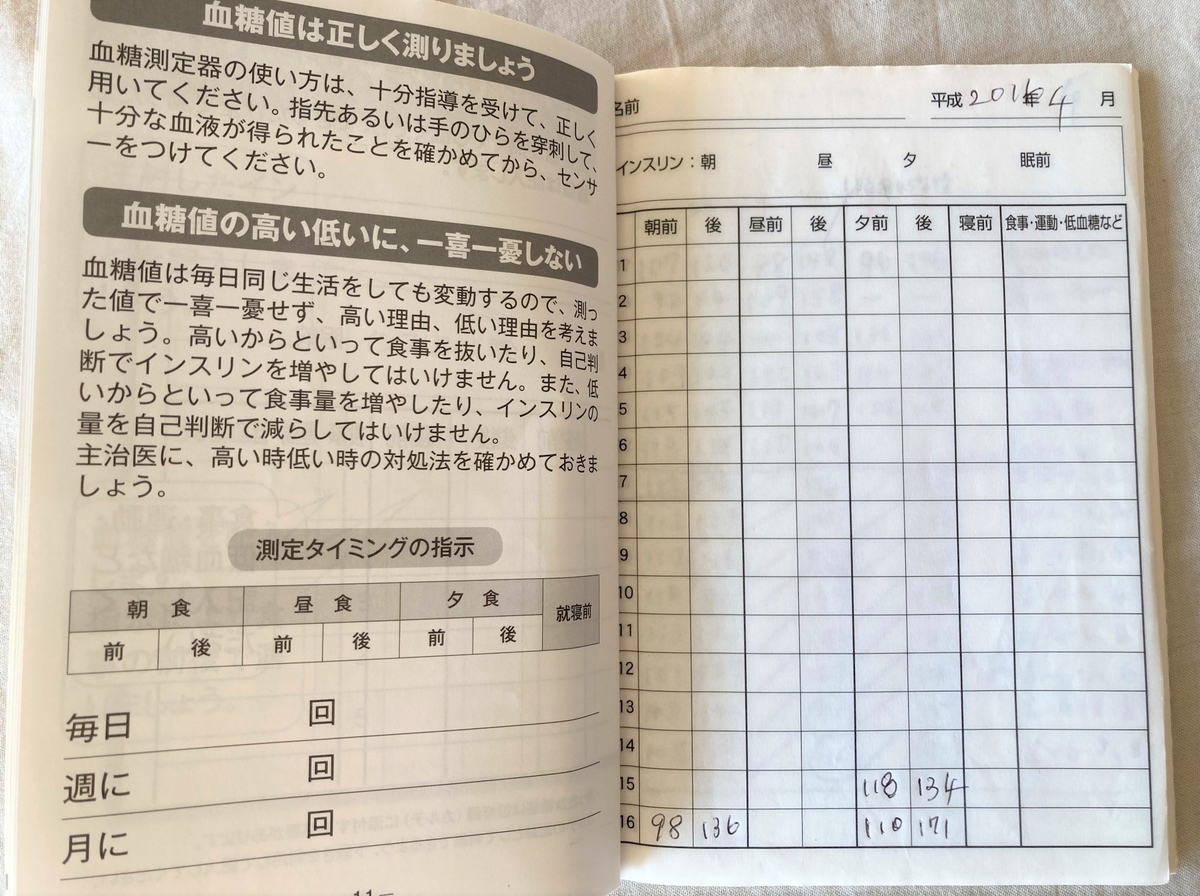 血糖値は正しく測りましょう
血糖測定器の使い方は、十分指導を受けて、正しく
用いてください。指先あるいは手のひらを穿刺して、
十分な血液が得られたことを確かめてから、センサ
ーをつけてください。
血糖値の高い低いに、一喜一憂しない
血糖値は毎日同じ生活をしても変動するので、測っ
た値で一喜一憂せず、高い理由、低い理由を考えま
しょう。高いからといって食事を抜いたり、自己判
断でインスリンを増やしてはいけません。また、低
いからといって食事量を増やしたり、インスリンの
量を自己判断で減らしてはいけません。
主治医に、高い時低い時の対処法を確かめておきま
しょう。
測定タイミングの指示
朝 食 昼 食 夕 食 就寝前
前 後 前 後 前 後
毎日 回
週に 回
月に 回
11−
名前 平成 2016年 4 月
インスリン：朝 昼 夕 眠前
朝前 後 昼前 後 夕前 後 寝前 食事・運動・低血糖など
1
2
3
4
5
6
7
8
9
10
11
12
13
14
15 118 134
16 98 136 110 171